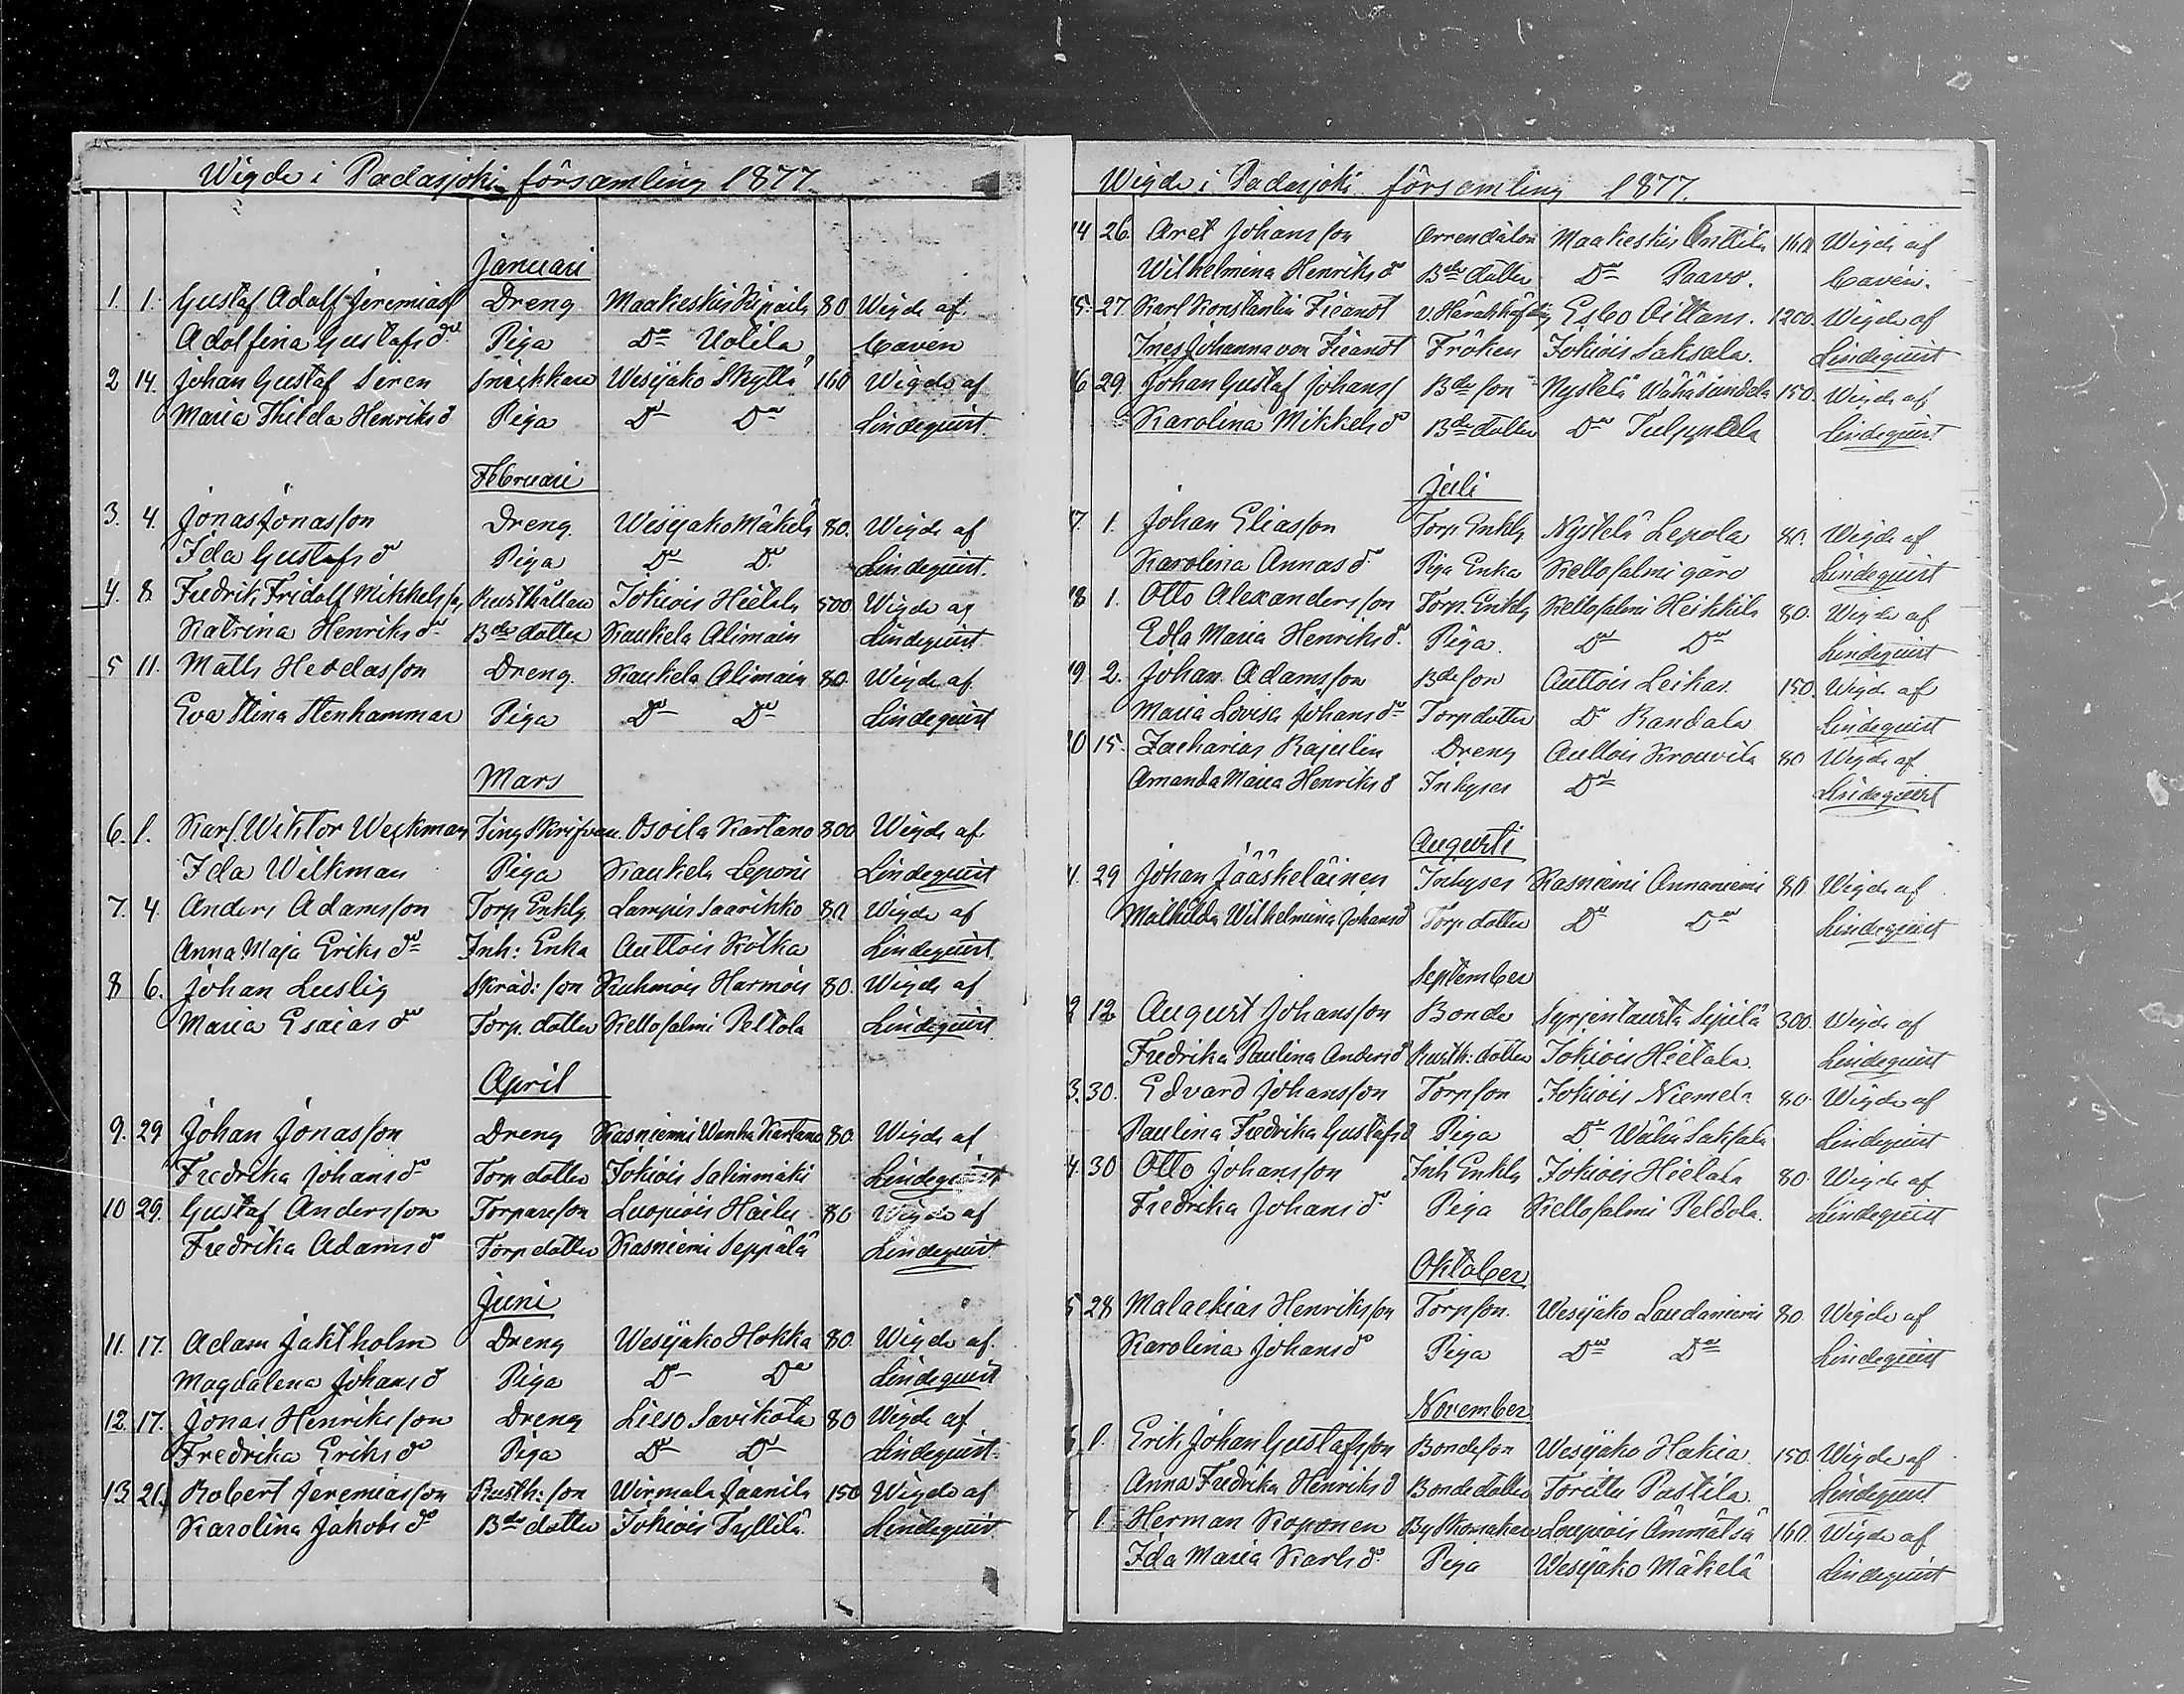 Wigde i Padasjoki församling 1877
Januari
1. 1. Gustaf Adolf Jeremiass Dreng Maakeskis Seppäilä 80 Wigde af
Adolfina Gustafsdr Piga Do Uotila Caven
2 14. Johan Gustaf Siren Snickare Wesijako Skyttä 160 Wigde af
Maria Thilda Henriksd Piga Do Do Lindequist.
Februari
3. 4. Jonas Jonasson Dreng. Wesijako Mäkelä 80. Wigde af
Ida Gustafsdr Piga Do Do Lindequist.
4. 8. Fredrik Fridolf Mikkelsson Rusthållare Jokiois Hietala 500 Wigde af
Katrina Henriksdr Bde dotter Kaukela Alimain Lindequist.
5 11. Matts Heddasson Dreng. Kaukela Alimain 80 Wigde af
Eva Stina Stenhammar Piga Do Do Lindequist
Mars
6. 1. Karl Wiktor Weckman Ting Skrifvare. Osoila Kartano 800 Wigde af
Ida Wilkman Piga Kaukela Leponi Lindequist
7. 4 Anders Adamsson Torp Enklg Lampis Saarikko 80 Wigde af
Anna Maja Eriksdr Inh: Enka Auttois Kotka Lindequist.
8 6. Johan Luslig Skräd: son Kuhmois Harmois 80. Wigde af
Maria Esaiasdr Torp. dotter Kellosalmi Peltola Lindequist
April
9. 29 Johan Jonasson Dreng Kasniemi Wanha Kartano 80. Wigde af
Fredrika Johansdr Torp dotter Jokiois Salinmäki Lindequist
10 29. Gustaf Andersson Torpareson Luopiois Haila 80 Wigde af
Fredrika Adamsd Torp dotter Kasniemi Seppälä Lindequist.
Juni
11. 17. Adam Jaktholm Dreng Wesijako Hokka 80. Wigde af
Magdalena Johansd Piga Do Do Lindequist
12. 17. Jonas Henriksson Dreng Lieso Savikota 80 Wigde af
Fredrika Eriksd Piga Do Do Lindequist.
13. 21. Robert Jeremiasson Rusth: son Wirmala Jaanila 150 Wigde af
Karolina Jakobsd Bde dotter Jokiois Tyllilä Lindequist
Wigde i Padasjoki församling 1877.
14 26 Aret Johansson Arrendator Maakeskis Anttila 160 Wigde af
Wilhelmina Henriksd Bde dotter Do Paavo. Caven.
5. 27. Karl Konstantin Fieandt v. Häradshöfding Esbo Aittans. 1200. Wigde af
Ines Johanna von Fieandt Fröken Jokiois Saksala. Lindequist
6 29. Johan Gustaf Johanss Bde son Nystelä Wähäsimola 150. Wigde af
Karolina Mikkelsd Bde dotter Do Tulppala Lindequist
Juli
7. 1. Johan Eliasson Torp. Enklg Nystelä Lepola 80. Wigde af
Karolina Annasd Piga Enka Kellosalmi gård Lindequist
18 1. Otto Alexandersson Torp. Enklg Kellosalmi Heikkilä 80. Wigde af
Edla Maria Henriksd. Piga. Do Do Lindequist
9 2. Johan Adamsson Bde son Auttois Leikas. 150. Wigde af
Maria Lovisa Johansdr Torp dotter Do Randala Lindequist
0 15. Zacharias Rajulin Dreng Auttois Krouvila 80 Wigde af
Amanda Maria Henriksd Inhyses Do Lindequist
Augusti
1. 29 Johan Jääskeläinen Inhyses Kasniemi Annaniemi 80 Wigde af
Mathilda Wilhelmina Johansd Torp dotter Do Do Lindequist
September
2 12 August Johansson Bonde Syrjentausta Sipilä 300. Wigde af
Fredrika Paulina Andersd Rusth: dotter Jokiois Hietala Lindequist
3. 30. Edvard Johansson Torpson Jokiois Niemelä 80. Wigde af
Paulina Fredrika Gustafsd Piga Do Wähä Saksala Lindequist
4. 30 Otto Johansson Inh Enklg Jokiois Hietala 80. Wigde af
Fredrika Johansdr Piga Kellosalmi Peldola. Lindequist
Oktober
5 28 Malackias Henriksson Torpson. Wesijako Laudaniemi 80. Wigde af
Karolina Johansd Piga Do Do Lindequist
November
6 1. Erik Johan Gustafsson Bondeson Wesijako Hakia 150. Wigde af
Anna Fredrika Henriksd Bonde dotter Torittu Pastila. Lindequist
7 1. Herman Koponen By Skomakare Loupiois Ämmätsä 160. Wigde af
Ida Maria Karlsd Piga Wesijako Mäkelä Lindequist